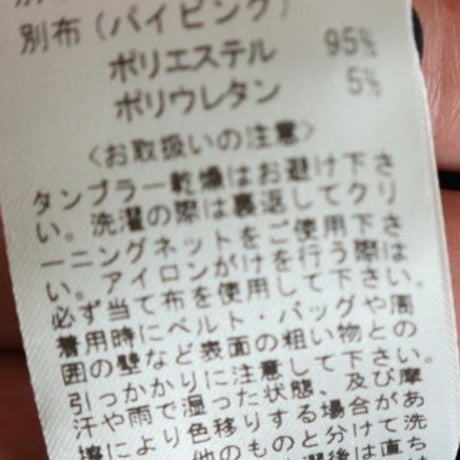 別布(パイピング)
ポリエステル 95%
ポリウレタン 5%
<お取扱いの注意>
タンブラー乾燥はお避け下さ
い。洗濯の際は裏返してクリ
ーニングネットをご使用下さ
い。アイロンがけを行う際は
必ず当て布を使用して下さい。
着用時にベルト・バッグや周
囲の壁など表面の粗い物との
引っかかりに注意して下さい。
汗や雨で湿った状態、及び摩
擦により色移りする場合があ
他のものと分けて洗
濯後は直ち